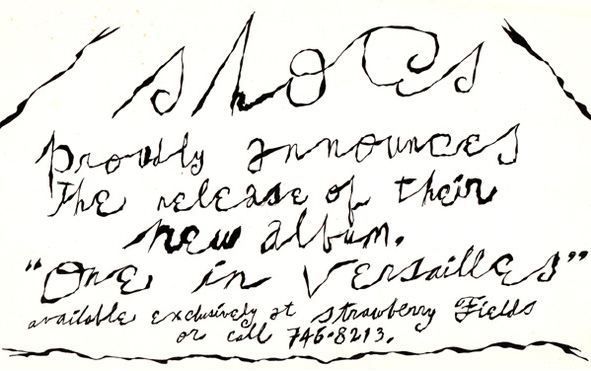 shoes
proudly announces
The release of their
new album.
"One in Versailles"
available exclusively at Strawberry Fields
or call 746-8213.